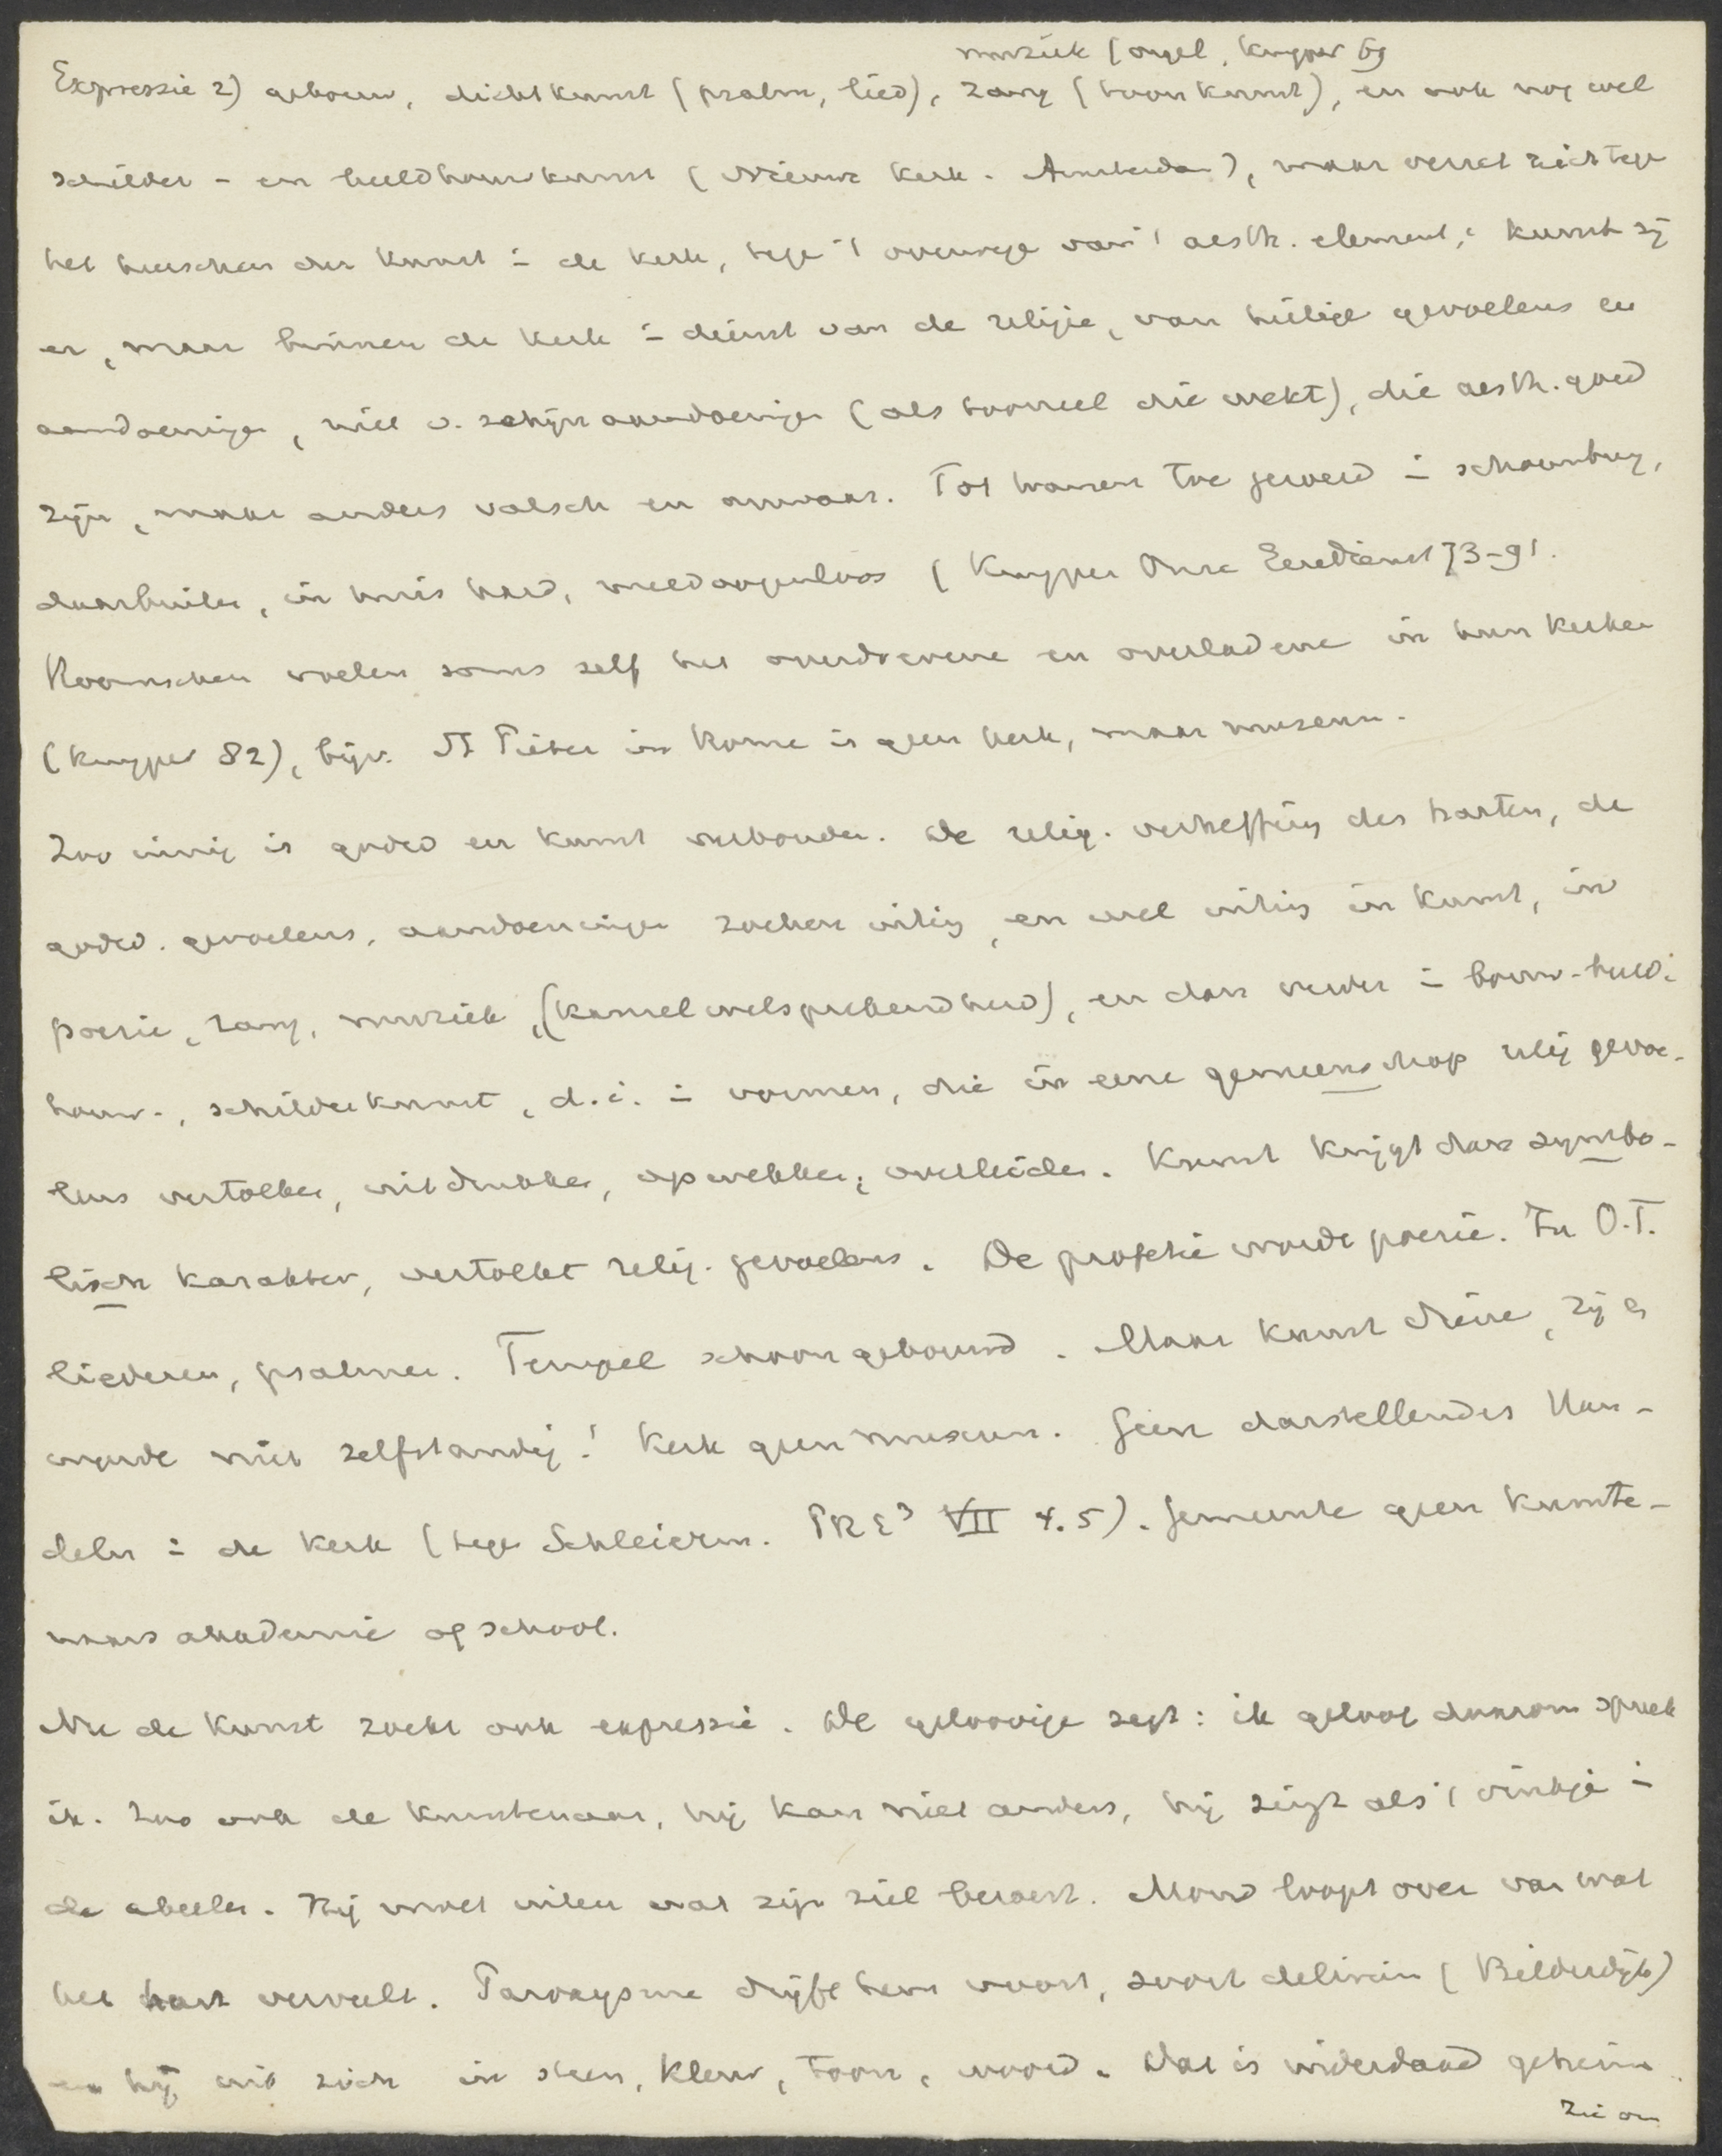 muziek (orgel, Kuyper 69
Expressie 2) gebouw, dichtkunst (psalm, lied), zang (toonkunst), en ook nog wel
schilder- en beeldhouwkunst (Nieuwe Kerk. Amsterdam), maar verzet zich tegen
het heerschen der kunst in de kerk, tege 't overwege van 't aesth. element; kunst zij
er, maar binnen de kerk in dienst van de religie, van heilige gevoelens en
aandoeninge, niet v. schijnaandoeningen (als tooneel die wekt), die aesth. goed
zijn, maar anders valsch en onwaar. Tot tranen toe geroerd in schouwburg,
daarbuiten, in huis hard, meedoogenloos (Kuyper Onze Eeredienst 73-91.
Roomschen voelen soms zelf het overdrevene en overladene in hun kerken
(Kuyper 82), bijv. St Pieter in Rome is geen kerk, maar museum.
Zoo innig is godsd en kunst verbonden. De relig. verheffing des harten, de
godsd. gevoelens, aandoeningen zoeken uiting, en wel uiting in kunst, in
poezie, zang, muziek, (kanselwelsprekendheid), en dan verder in bouw- beeld-
houw-, schilderkunst, d.i. in vormen, die in eene gemeenschap relig gevoe-
lens vertolken, uitdrukken, opwekken, overleiden. Kunst krijgt dan symbo-
lisch karakter, vertolkt relig. gevoelens. De profetie wordt poezie. In O.T.
liederen, psalmen. Tempel schoon gebouwd. Maar kunst diene, zij en
worde niet zelfstandig! Kerk geen museum. Geen darstellendes Han-
deln in de kerk (tege Schleierm. PRE³ VII 4.5). Gemeente geen kunste-
naars akademie of school.
Nu de kunst zoekt ook expressie. De geloovige zegt: ik geloof daarom spreek
ik. Zoo ook de kunstenaar, hij kan niet anders, hij zingt als 't vinkje in
de abeelen. Hij moet uiten wat zijn ziel beroert. Mond loopt over van wat
het hart vervult. Paroxysme drijft hem voort, soort delirium (Bilderdijk)
en hij uit zich in steen, kleur, toon, woord. Dat is inderdaad geheim.
Zie om